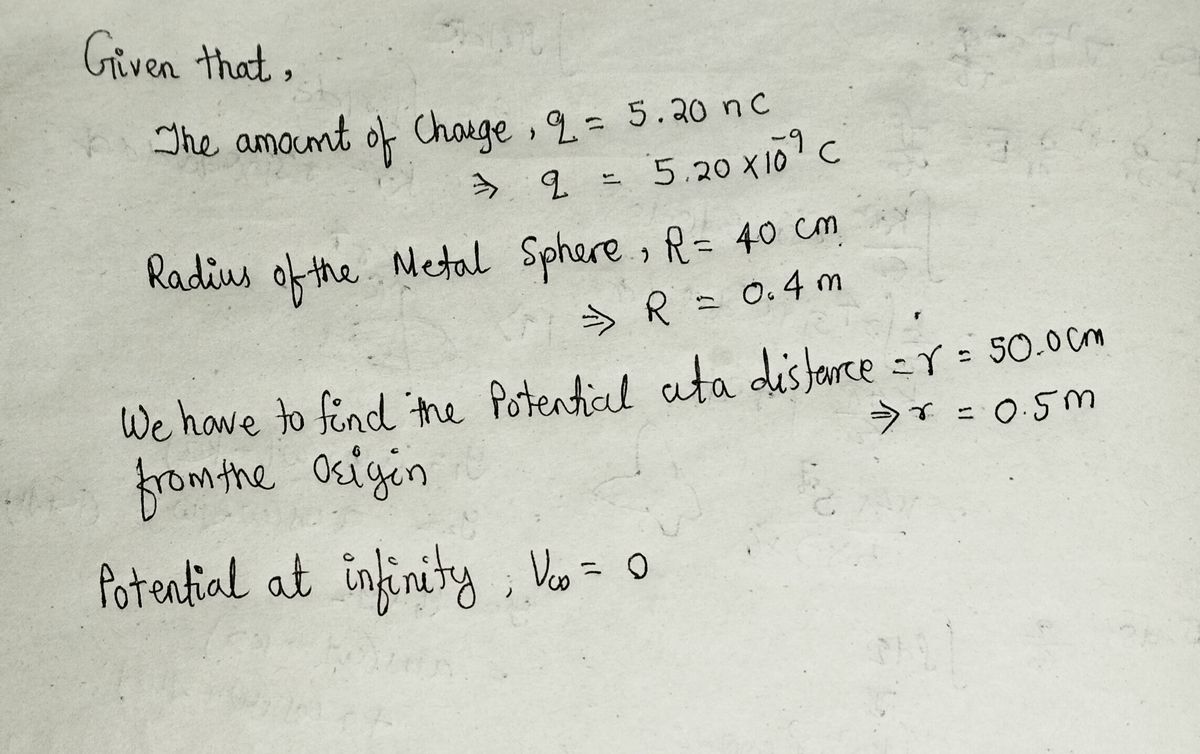 Given that,
The amount of Charge, q = 5.20 nC
⇒ q = 5.20 × 10⁻⁹ C
Radius of the Metal Sphere, R = 40 cm
⇒ R = 0.4 m
We have to find the Potential at a distance = r = 50.0 cm
⇒ r = 0.5 m
from the Origin
Potential at infinity, V∞ = 0